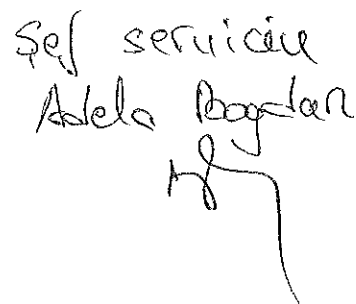 Șef serviciu
Adela Bogdan